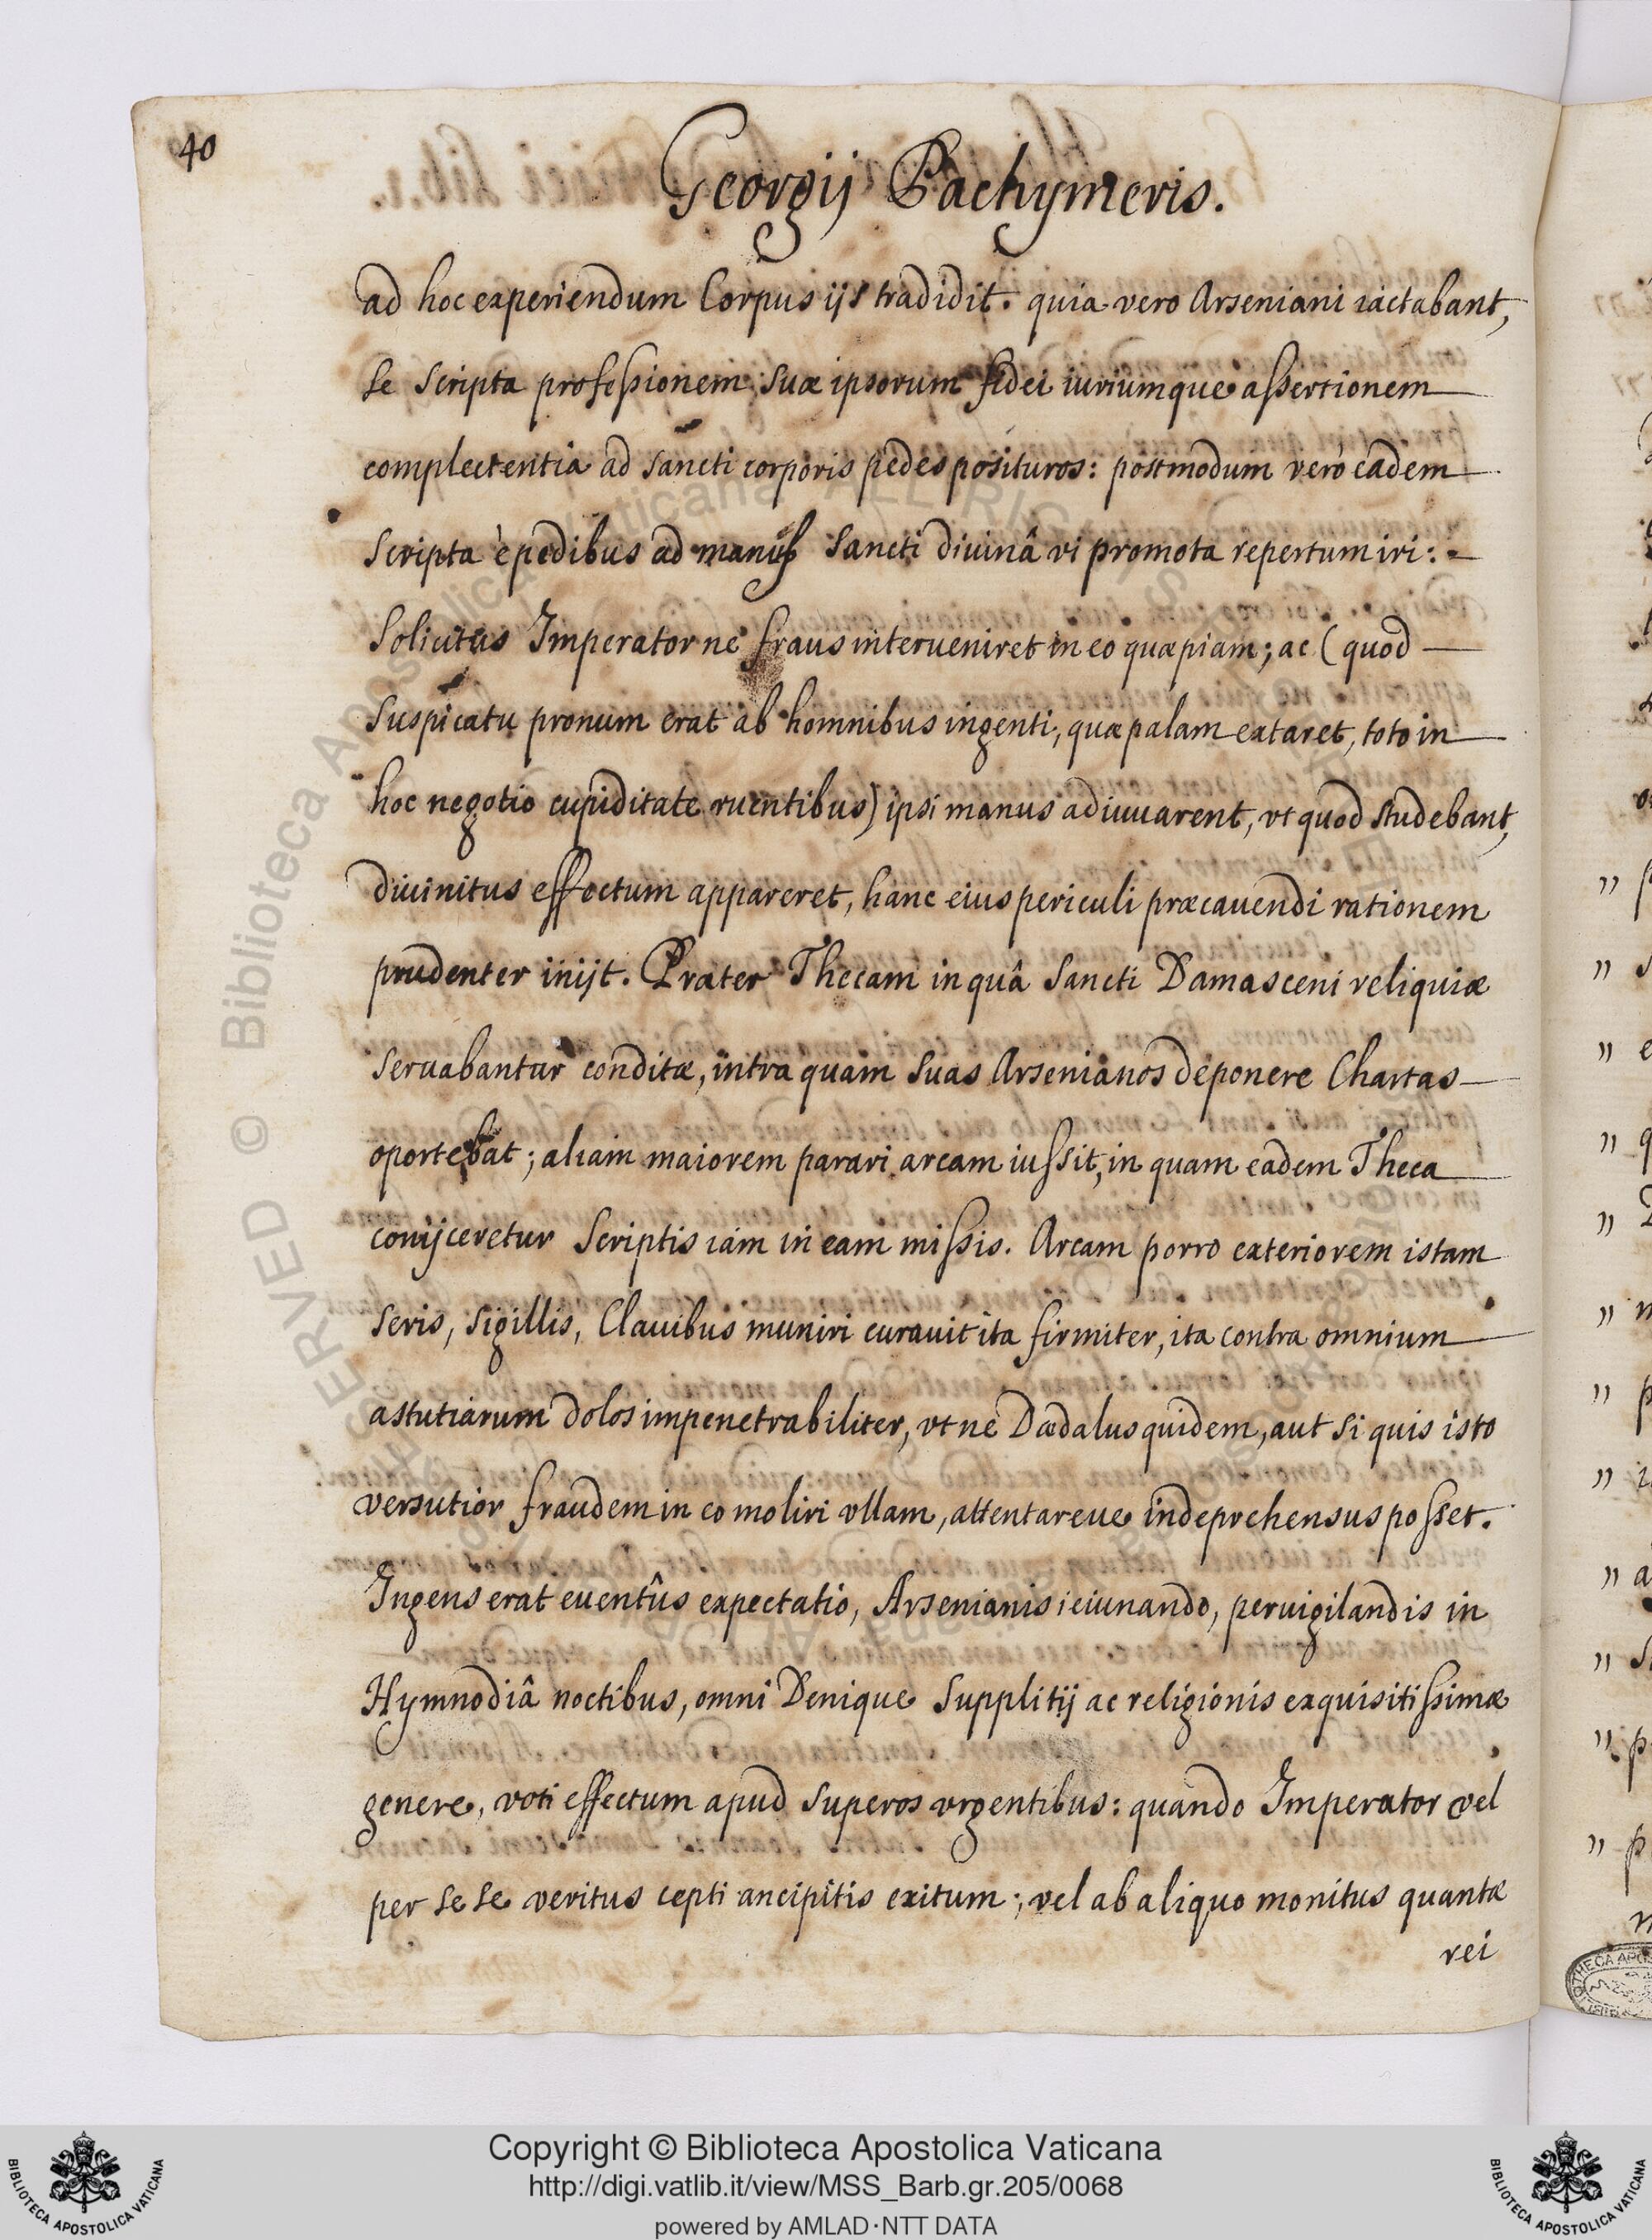 40
Georgij Pachymeris.
ad hoc experiendum Corpus ijs tradidit. quia vero Arseniani iactabant,
se scripta professionem suæ ipsorum fidei iuriumque assertionem
complectentia ad sancti corporis pedes posituros: postmodum verò eadem
scripta è pedibus ad manus sancti diuinâ vi promota repertum iri:
Solicitus Imperator ne fraus interueniret in eo quæpiam; ac (quod
suspicatu pronum erat ab homnibus ingenti, quæ palam extaret, toto in
hoc negotio cupiditate ruentibus) ipsi manus adiuuarent, vt quod studebant,
diuinitus effectum appareret, hanc eius periculi præcauendi rationem
prudenter inijt. Præter Thecam in quâ Sancti Damasceni reliquiæ
seruabantur conditæ, intra quam suas Arsenianos deponere Chartas
oportebat; aliam maiorem parari arcam iussit, in quam eadem Theca
conijceretur scriptis iam in eam missis. Arcam porro exteriorem istam
seris, sigillis, Clauibus muniri curauit ita firmiter, ita contra omnium
astutiarum dolos impenetrabiliter, vt ne Dædalus quidem, aut si quis isto
versutior fraudem in eo moliri vllam, attentareue indeprehensus posset.
Ingens erat euentûs expectatio, Arsenianis ieiunando, peruigilandis in
Hymnodiâ noctibus, omni Denique supplitij ac religionis exquisitissimæ
genere, voti effectum apud superos vrgentibus: quando Imperator vel
per se se veritus cepti ancipitis exitum; vel ab aliquo monitus quantæ
rei
Copyright © Biblioteca Apostolica Vaticana
http://digi.vatlib.it/view/MSS_Barb.gr.205/0068
powered by AMLAD·NTT DATA